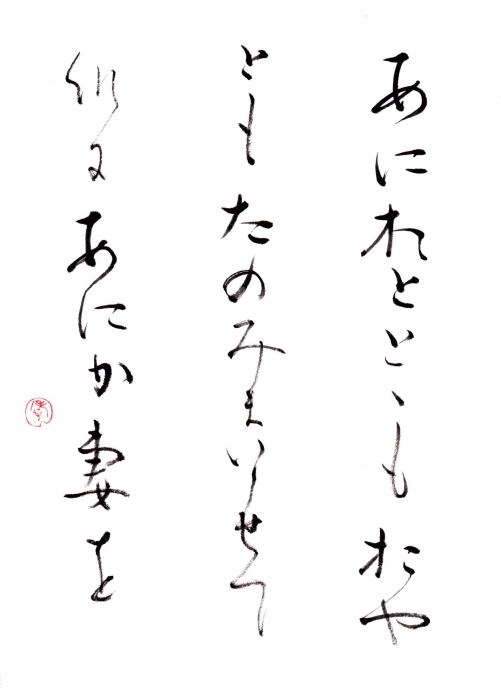 あにおととゝもおや
ともたのみまいらせて
候にあにか妻を